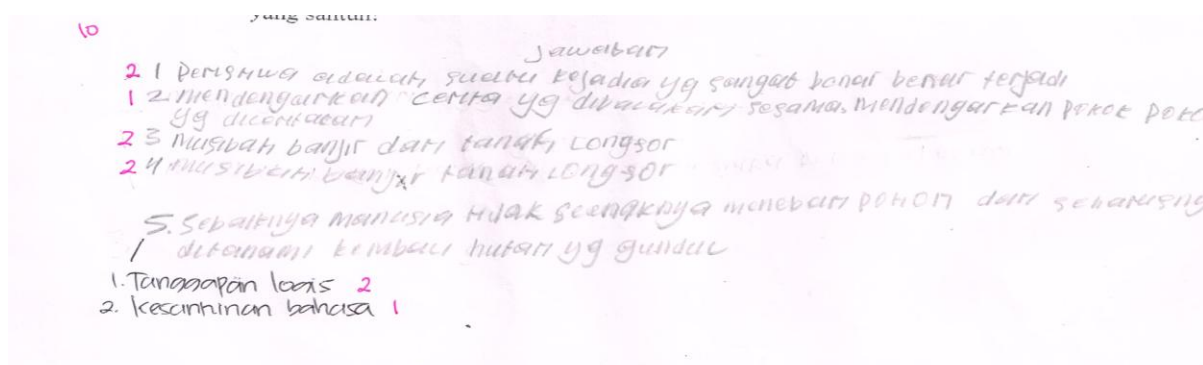 yang santun!
10
Jawaban
2 1 Peristiwa adalah suatu kejadia yg sangat benar benar terjadi
1 2 mendengarkan cerita yg dibacakan sesama. Mendengarkan pokok poko
yg diceritakan
2 3 Musibah banjir dan tanah Longsor
2 4 musibah banjir tanah Longsor
5. Sebaiknya manusia tidak seenaknya meneban pohon dan seharusnya
ditanami kembali hutan yg gundul
1. Tanggapan logis 2
2. Kesantunan bahasa 1